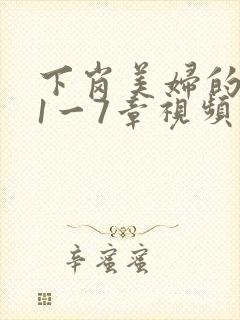 下岗美婦的
1一7章視頻
辛蜜蜜